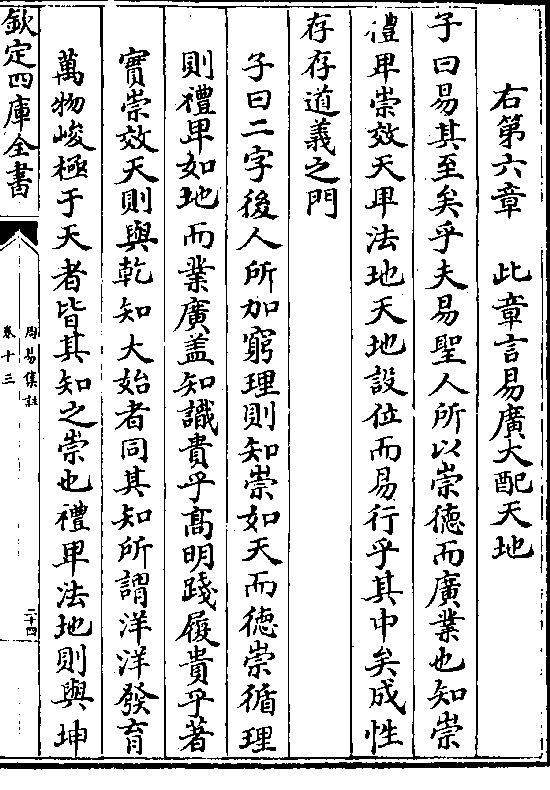 右第六章　此章言易廣大配天地
子曰易其至矣乎夫易聖人所以崇德而廣業也知崇
禮卑崇效天卑法地天地設位而易行乎其中矣成性
存存道義之門
子曰二字後人所加窮理則知崇如天而德崇循理
則禮卑如地而業廣盖知識貴乎髙明踐履貴乎著
實崇效天則與乾知大始者同其知所謂洋洋發育
萬物峻極于天者皆其知之崇也禮卑法地則與坤
欽定四庫全書
周易集註
卷十三
二十四